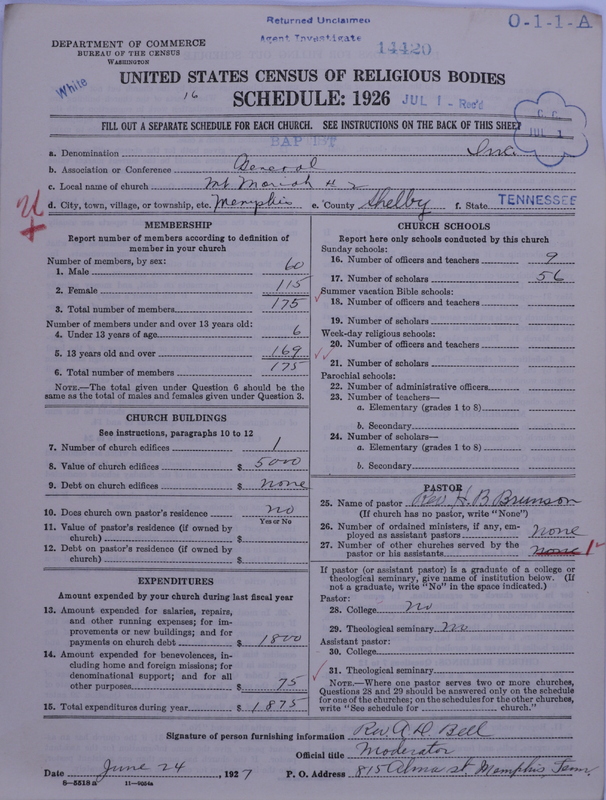 Returned Unclaimed
Agent Investigate
14420
O-1-1-A
DEPARTMENT OF COMMERCE
BUREAU OF THE CENSUS
WASHINGTON
White
16
UNITED STATES CENSUS OF RELIGIOUS BODIES
SCHEDULE: 1926
JUL 1 - Rec'd
JUL 1
FILL OUT A SEPARATE SCHEDULE FOR EACH CHURCH. SEE INSTRUCTIONS ON THE BACK OF THIS SHEET
BAPTIST
a. Denomination
b. Association or Conference General
c. Local name of church Mt Moriah # 2
d. City, town, village, or township, etc. Memphis e. County Shelby f. State TENNESSEE
MEMBERSHIP
Report number of members according to definition of
member in your church
Number of members, by sex:
1. Male 60
2. Female 115
3. Total number of members 175
Number of members under and over 13 years old:
4. Under 13 years of age 6
5. 13 years old and over 169
6. Total number of members 175
NOTE.—The total given under Question 6 should be the
same as the total of males and females given under Question 3.
CHURCH BUILDINGS
See instructions, paragraphs 10 to 12
7. Number of church edifices 1
8. Value of church edifices $ 5000
9. Debt on church edifices $ none
10. Does church own pastor's residence no
Yes or No
11. Value of pastor's residence (if owned by
church) $
12. Debt on pastor's residence (if owned by
church) $
EXPENDITURES
Amount expended by your church during last fiscal year
13. Amount expended for salaries, repairs,
and other running expenses; for im-
provements or new buildings; and for
payments on church debt $ 1800
14. Amount expended for benevolences, in-
cluding home and foreign missions; for
denominational support; and for all
other purposes $ 75
15. Total expenditures during year $ 1875
CHURCH SCHOOLS
Report here only schools conducted by this church
Sunday schools:
16. Number of officers and teachers 9
17. Number of scholars 56
Summer vacation Bible schools:
18. Number of officers and teachers
19. Number of scholars
Week-day religious schools:
20. Number of officers and teachers
21. Number of scholars
Parochial schools:
22. Number of administrative officers
23. Number of teachers—
a. Elementary (grades 1 to 8)
b. Secondary
24. Number of scholars—
a. Elementary (grades 1 to 8)
b. Secondary
PASTOR
25. Name of pastor Rev. H. B. Brunson
(If church has no pastor, write "None")
26. Number of ordained ministers, if any, em-
ployed as assistant pastors none
27. Number of other churches served by the
pastor or his assistants none 1
If pastor (or assistant pastor) is a graduate of a college or
theological seminary, give name of institution below. (If
not a graduate, write "No" in the space indicated.)
Pastor:
28. College no
29. Theological seminary no
Assistant pastor:
30. College
31. Theological seminary
NOTE.—Where one pastor serves two or more churches,
Questions 28 and 29 should be answered only on the schedule
for one of the churches; on the schedules for the other churches,
write "See schedule for church."
Signature of person furnishing information Rev. A. D. Bell
Official title Moderator
Date June 24, 1927 P. O. Address 815 Alma st. Memphis, Tenn.
8-5518 a 11-9254a